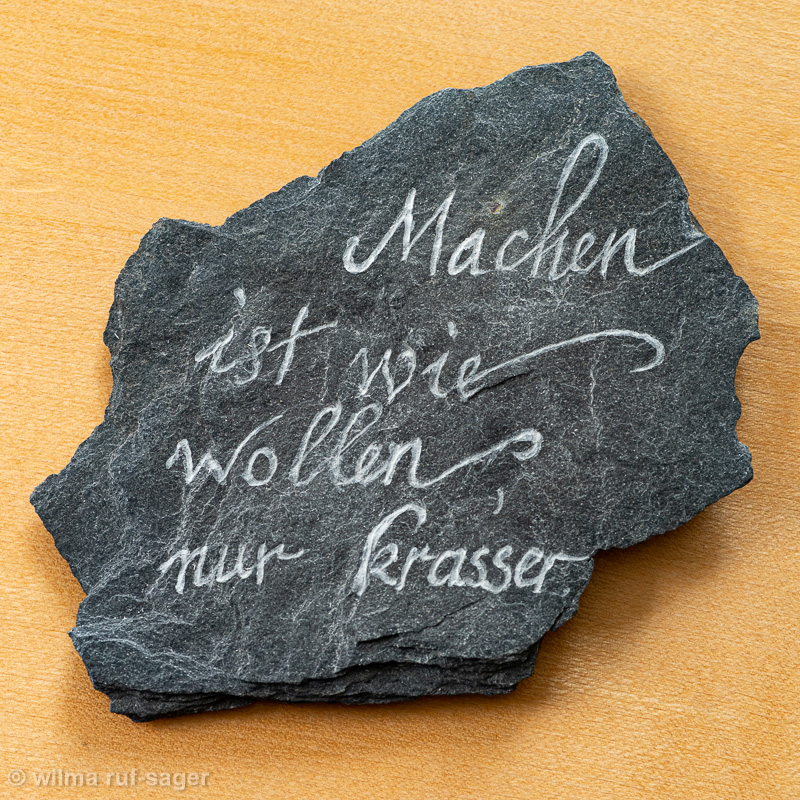 Machen
ist wie
wollen,
nur krasser.
© wilma ruf-sager